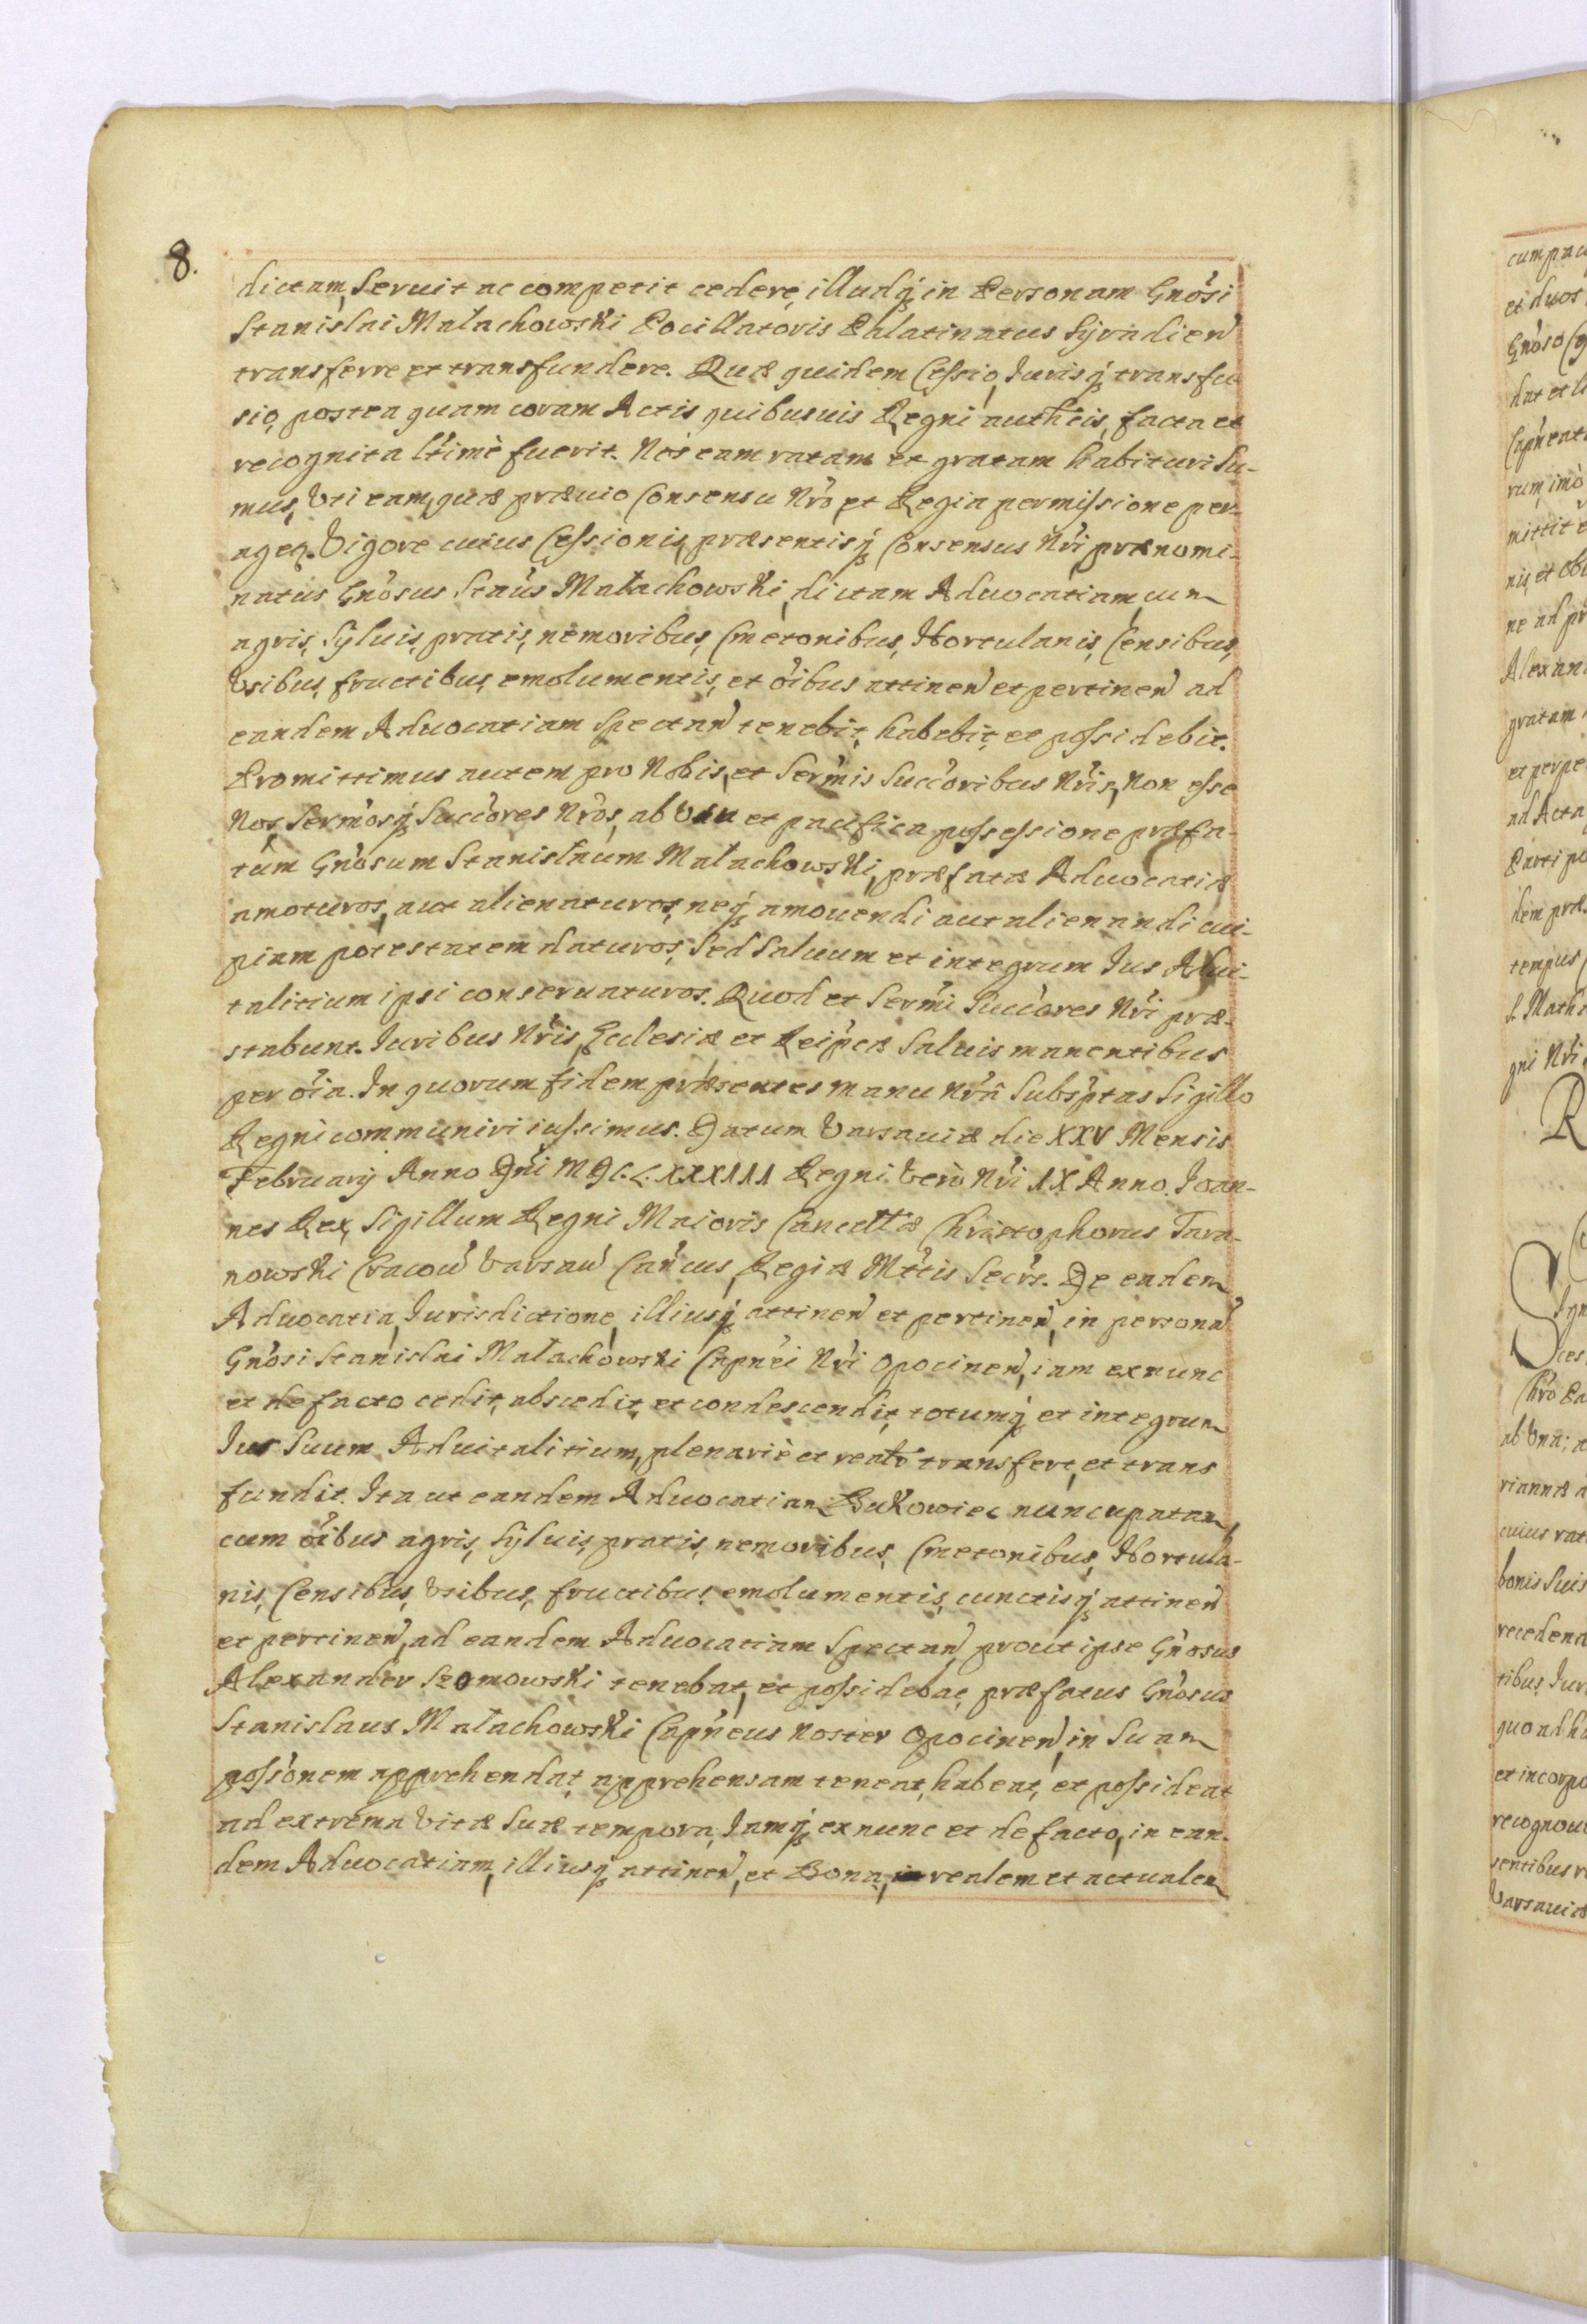 8.
dictam, Seruit ac competit cedere, illudq́ in Personam Gnósi
Stanislai Małachowski Pocillatoris Palatinatus Syradień
transferre et transfundere. Quæ quidem Cessio, Jurisq́ transfu
sio, postea quam coram Actis quibusuis Regni authcis, facta et
recognita ltimè fuerit. Nos eam ratam et gratam habituri Su-
mus, Uti eam, quæ præuio Consensu Nró et Regia permissione per-
aget. Vigore cuius Cessionis, præsentisq́ Consensus Nrí prænomi-
natus Gnósus Staús Małachowski, dictam Aduocatiam, cum
agris, Syluis, pratis, nemoribus, Cmetonibus, Hortulanis, Censibus,
Usibus, fructibus, emolumentis, et oíbus attineń et pertineń ad
eandem Aduocatiam Spectań tenebit, habebit, et possidebit.
Promittimus autem pro Nobis, et Sermís Succóribus Nrís, Non esse
Nos, Sermósq́ Succóres Nrós, ab Usu et pacifica possessione præfa-
tum Gnósum Stanisłaum Małachowski, præfatæ Aduocatiæ
amoturos, aut alienaturos, neq́ amouendi aut alienandi cui-
piam potestatem daturos, Sed Saluum et integrum Ius Adui-
talitium ipsi conseruaturos. Quod et Sermí Succóres Nrí præ-
stabunt. Iuribus Nrís, Ecclesiæ et Reipćæ Saluis manentibus
per oía. In quorum fidem præsentes manu Nrâ Subsptas Sigillo
Regni communiri iussimus. Datum Varsauiæ die XXV Mensis
February Anno Dńi MDC.L.XXXIII Regni Verò Nrí IX Anno. Joan-
nes Rex, Sigillum Regni Maioris Cancell̃æ Christophorus Tara-
nowski Cracoú Varsaú Cańcus, Regiæ Mttis Secrs. De eadem
Aduocatia, Iurisdictione, illiusq́ attineń et pertineń, in personá
Gnósi Stanislai Małachowski Capnéi Nrí Opocineń, iam exnunc
et de facto cedit, abscedit, et condescendit, totumq́ et integrum
Ius Suum Aduitalitium, plenariè et realr transfert, et trans
fundit. Ita ut eandem Aduocatiam Bukowiec nuncupatam,
cum oíbus agris, Syluis, pratis, nemoribus, Cmetonibus, Hortula-
nis, Censibus, Usibus, fructibus, emolumentis, cunctisq́ attineń
et pertineń, ad eandem Aduocatiam Spectań, prout ipse Gnósus
Alexander Szomowski tenebat, et possidebat, præfatus Gnósus
Stanislaus Małachowski Capnéus Noster Opocineń, in Suam
possónem apprehendat, apprehensam teneat, habeat, et possideat
ad extrema Vitæ Suæ tempora, Iamq́ exnunc et de facto, in ean-
dem Aduocatiam, illiusq́ attineń, et Bona, in realem et actualem